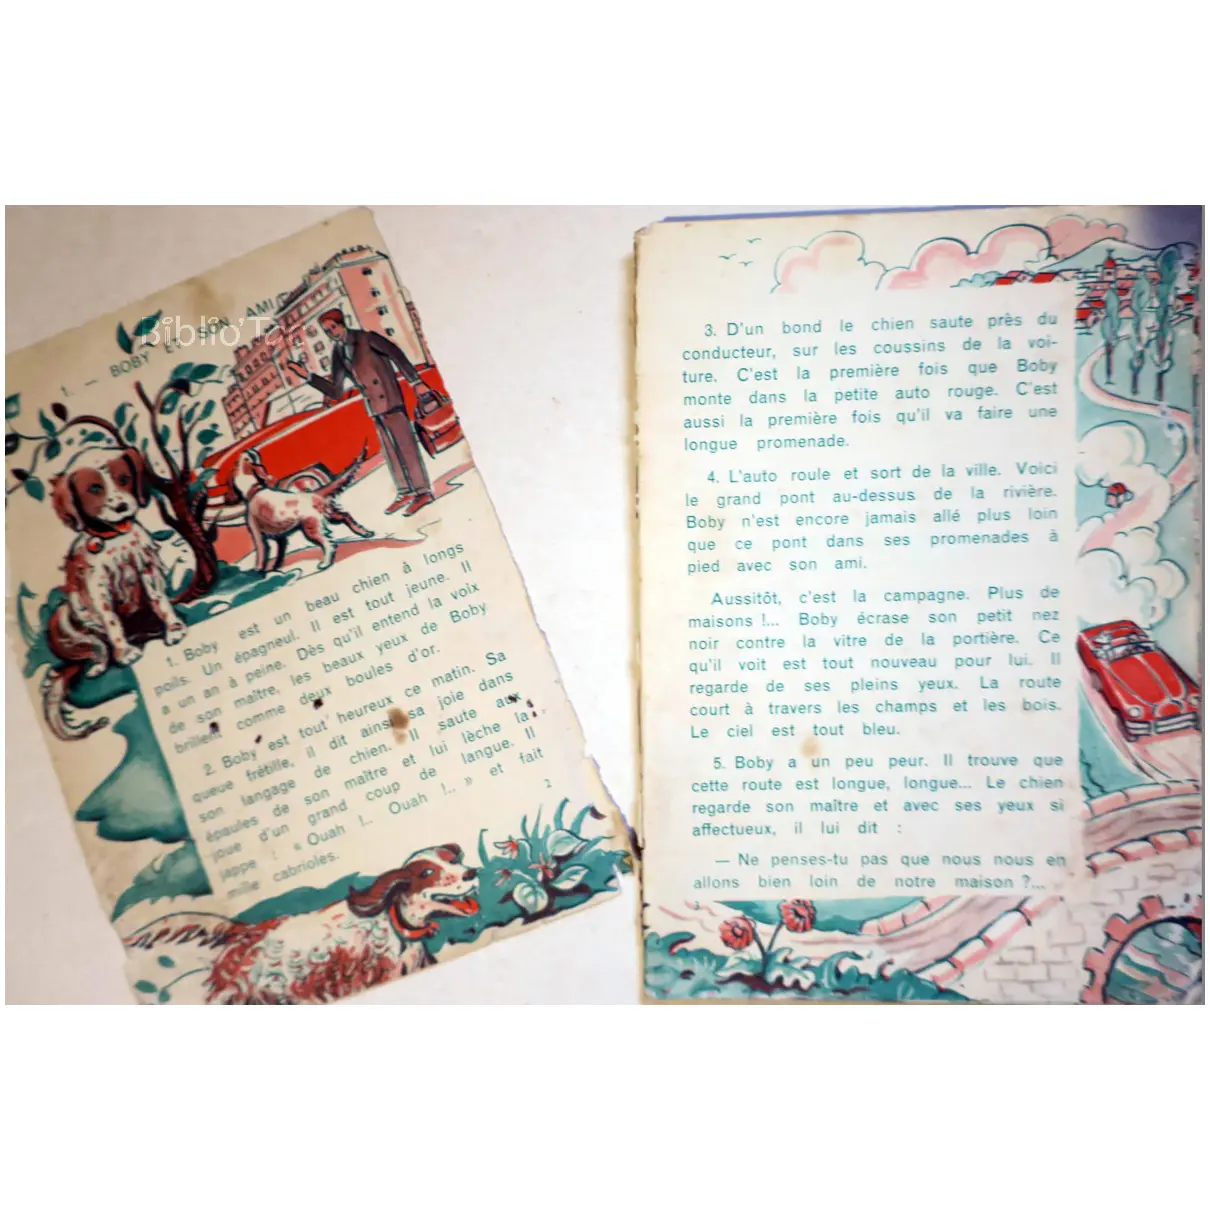 Biblio'Toc
1. — BOBY ET SON AMI
1. Boby est un beau chien à longs
poils. Un épagneul. Il est tout jeune. Il
a un an à peine. Dès qu'il entend la voix
de son maître, les beaux yeux de Boby
brillent comme deux boules d'or.
2. Boby est tout heureux ce matin. Sa
queue frétille, il dit ainsi sa joie dans
son langage de chien. Il saute aux
épaules de son maître et lui lèche la
joue d'un grand coup de langue. Il
jappe : « Ouah !.. Ouah !.. » et fait
mille cabrioles.
2
3. D'un bond le chien saute près du
conducteur, sur les coussins de la voi-
ture. C'est la première fois que Boby
monte dans la petite auto rouge. C'est
aussi la première fois qu'il va faire une
longue promenade.
4. L'auto roule et sort de la ville. Voici
le grand pont au-dessus de la rivière.
Boby n'est encore jamais allé plus loin
que ce pont dans ses promenades à
pied avec son ami.
Aussitôt, c'est la campagne. Plus de
maisons !... Boby écrase son petit nez
noir contre la vitre de la portière. Ce
qu'il voit est tout nouveau pour lui. Il
regarde de ses pleins yeux. La route
court à travers les champs et les bois.
Le ciel est tout bleu.
5. Boby a un peu peur. Il trouve que
cette route est longue, longue... Le chien
regarde son maître et avec ses yeux si
affectueux, il lui dit :
— Ne penses-tu pas que nous nous en
allons bien loin de notre maison ?...